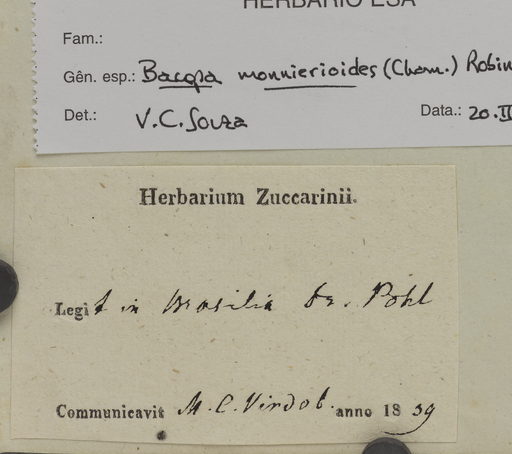 HERBÁRIO ESA
Fam.:
Gên. esp.: Bacopa monnierioides (Cham.) Robin
Det.: V.C. Souza Data.: 20.II
Herbarium Zuccarinii.
Legit in Brasilia Dr. Pohl
Communicavit M. C. Vindob. anno 1839